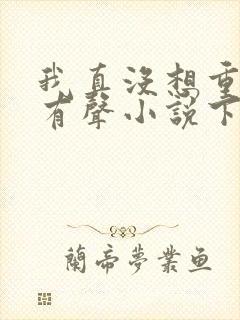 我真没想重
有聲小説下
蘭帝夢業鱼